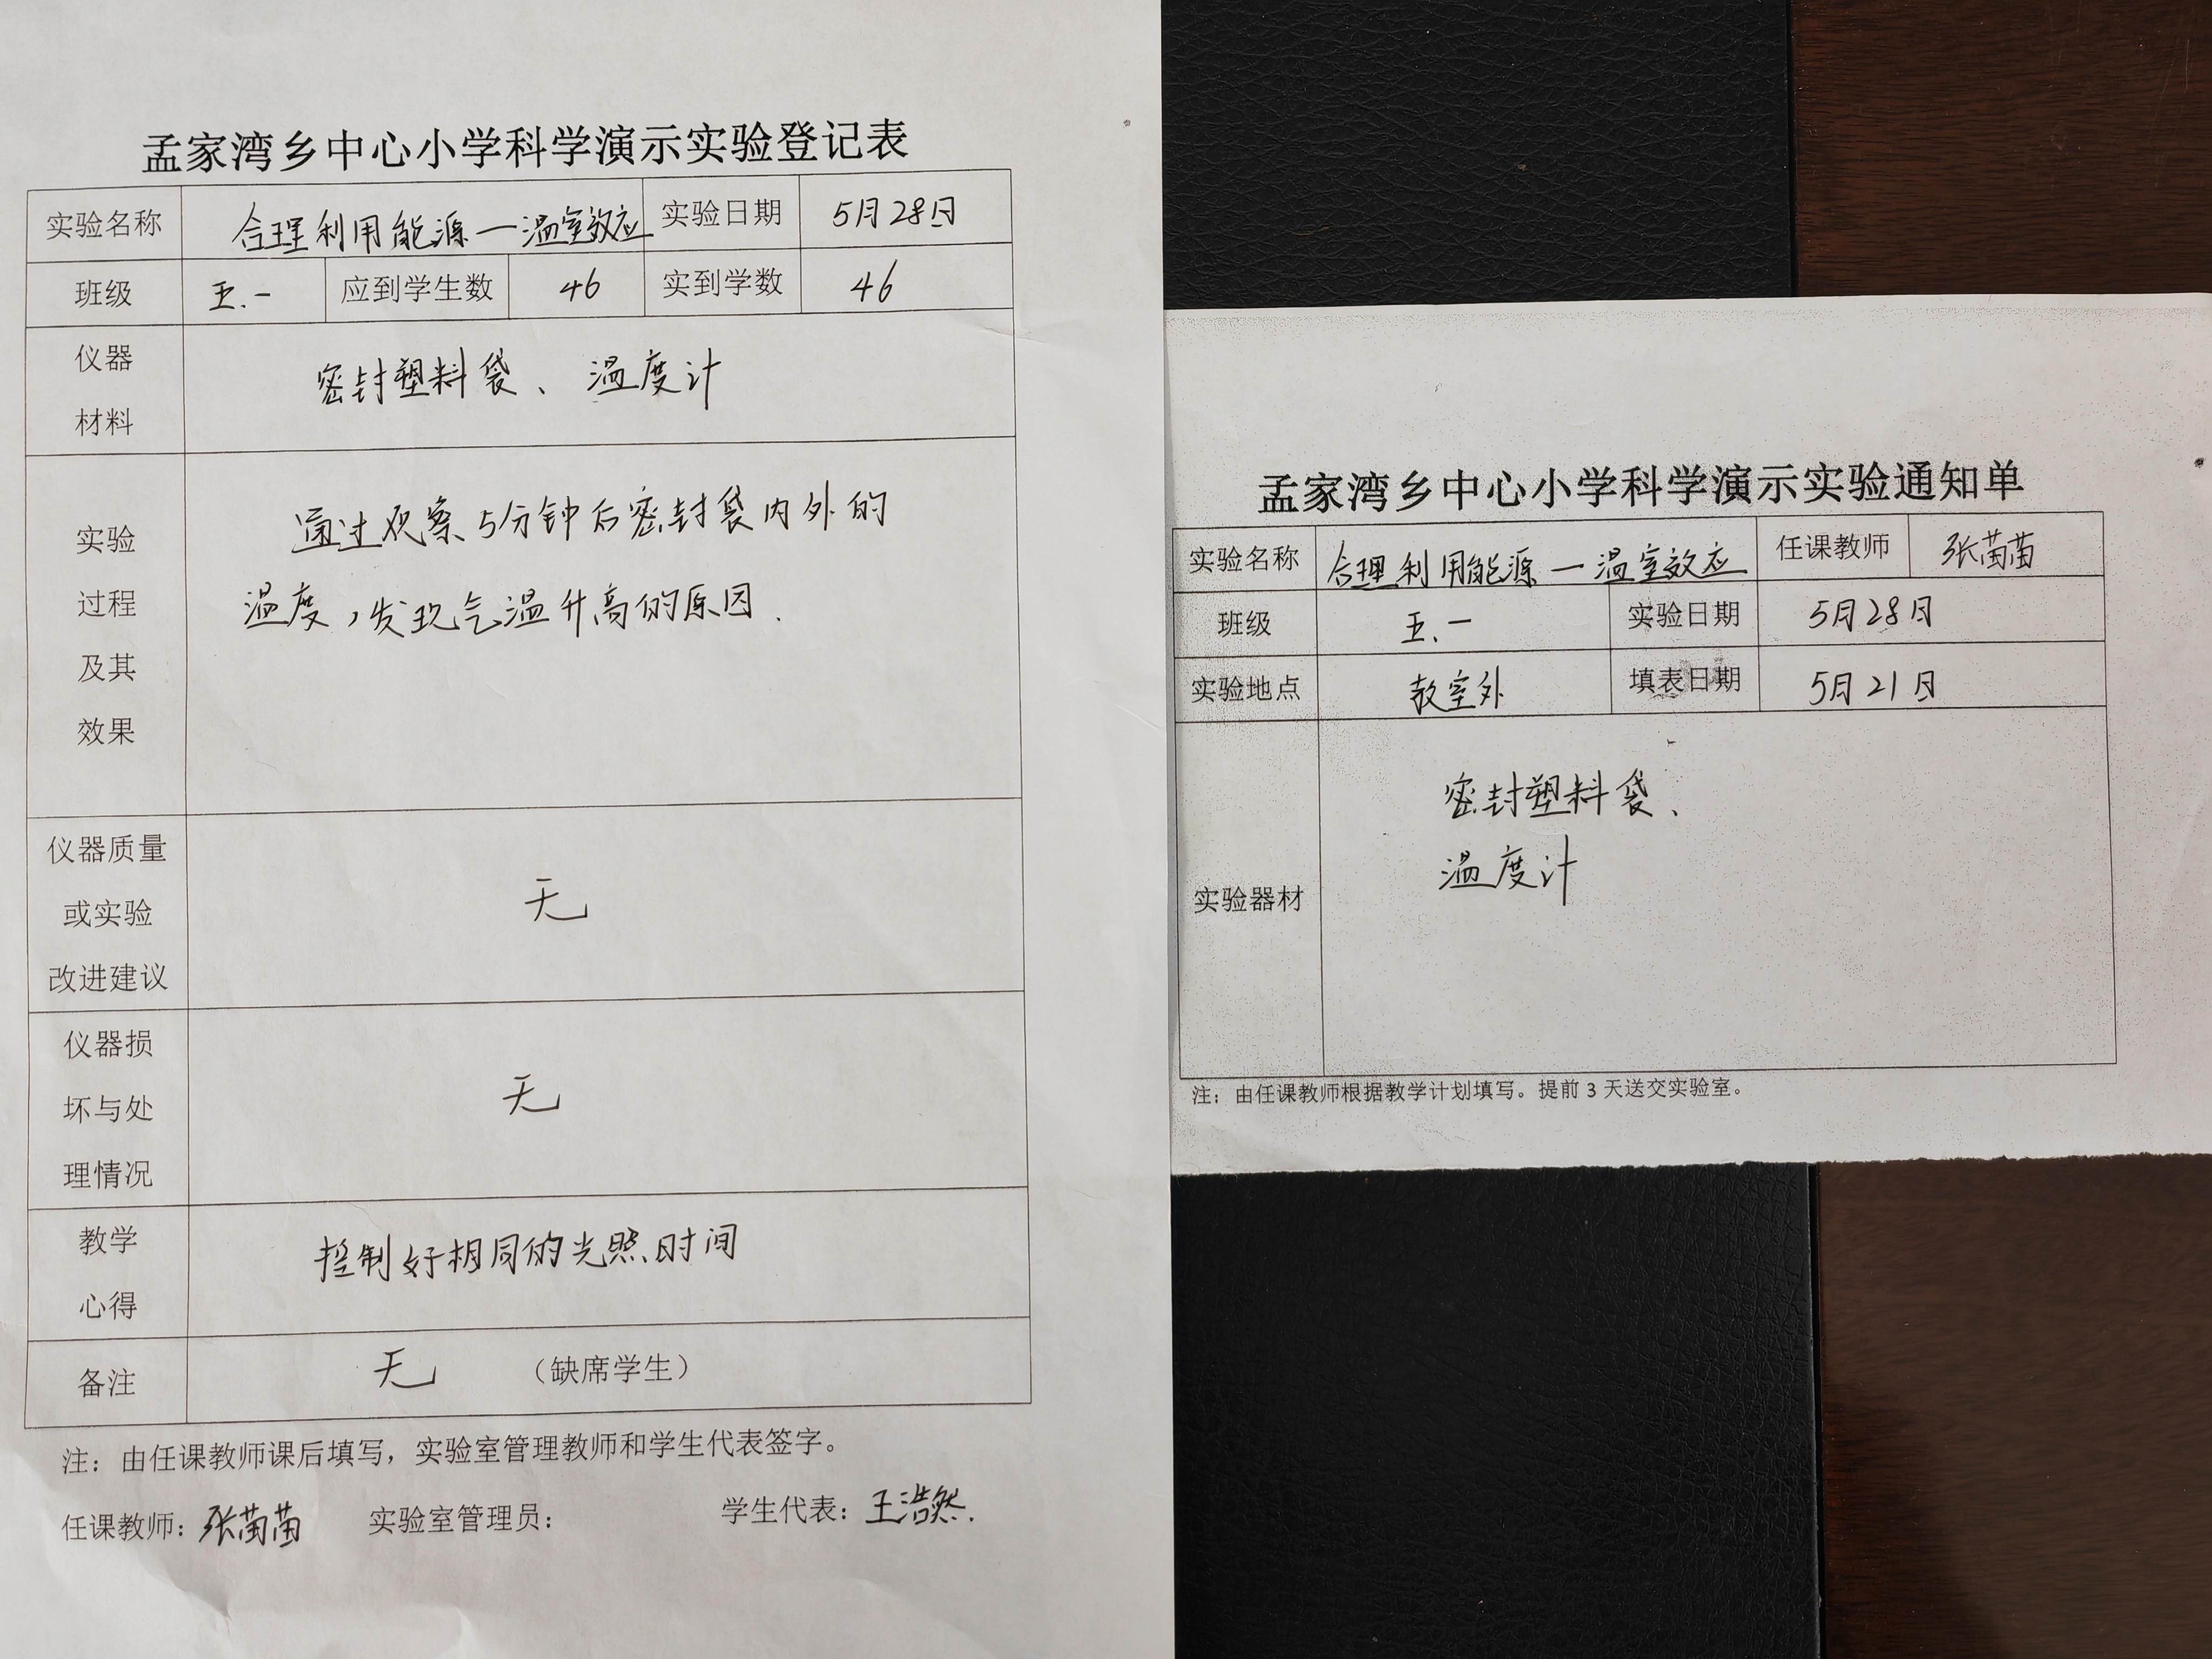 孟家湾乡中心小学科学演示实验登记表
实验名称 合理利用能源—温室效应 实验日期 5月28日
班级 五.一 应到学生数 46 实到学数 46
仪器
材料
密封塑料袋、温度计
实验
过程
及其
效果
通过观察5分钟后密封袋内外的
温度,发现气温升高的原因.
仪器质量
或实验
改进建议
无
仪器损
坏与处
理情况
无
教学
心得
控制好相同的光照时间
备注 无 （缺席学生）
注：由任课教师课后填写，实验室管理教师和学生代表签字。
任课教师：张苗苗 实验室管理员： 学生代表：王浩然.
孟家湾乡中心小学科学演示实验通知单
实验名称 合理利用能源—温室效应 任课教师 张苗苗
班级 五.一 实验日期 5月28日
实验地点 教室外 填表日期 5月21日
实验器材
密封塑料袋、
温度计
注：由任课教师根据教学计划填写。提前3天送交实验室。